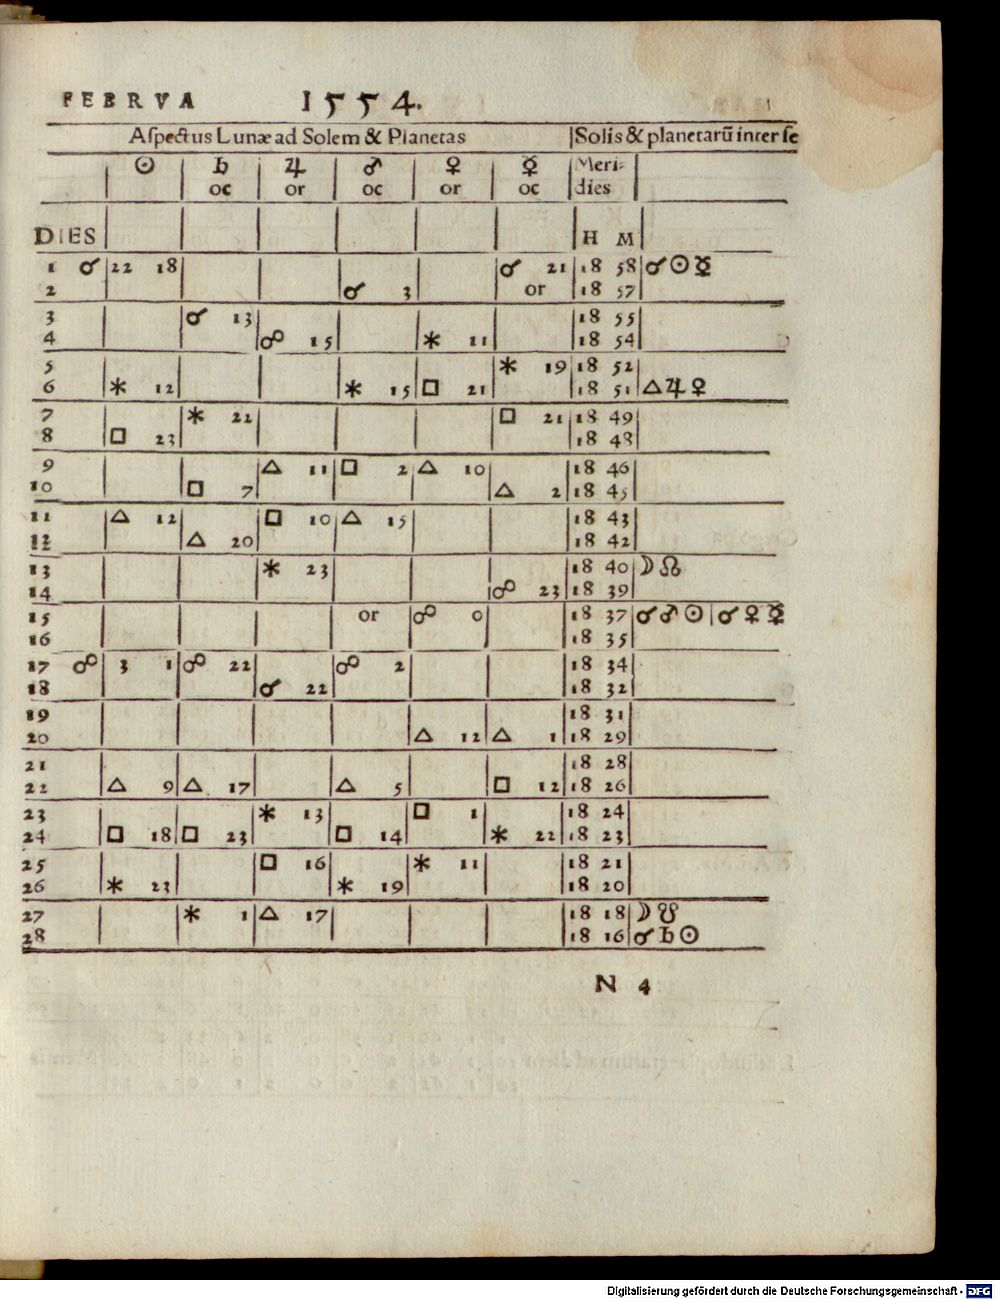 FEBRVA 1554.
Aſpectus Lunæ ad Solem & Planetas | Solis & planetarū inter ſe
☉ ♄ ♃ ♂ ♀ ☿ Meri-
oc or oc or oc dies
DIES H M
1 ☌ 22 18 ☌ 21 18 58 ☌ ☉ ☿
2 ☌ 3 or 18 57
3 ☌ 13 18 55
4 ☍ 15 ⚹ 11 18 54
5 ⚹ 19 18 52
6 ⚹ 12 ⚹ 15 □ 21 18 51 △ ♃ ♀
7 ⚹ 22 □ 21 18 49
8 □ 23 18 48
9 △ 11 □ 2 △ 10 18 46
10 □ 7 △ 2 18 45
11 △ 12 □ 10 △ 15 18 43
12 △ 20 18 42
13 ⚹ 23 18 40 ☽ ☊
14 ☍ 23 18 39
15 or ☍ 0 18 37 ☌ ♂ ☉ | ☌ ♀ ☿
16 18 35
17 ☍ 3 1 ☍ 22 ☍ 2 18 34
18 ☌ 22 18 32
19 18 31
20 △ 12 △ 1 18 29
21 18 28
22 △ 9 △ 17 △ 5 □ 12 18 26
23 ⚹ 13 □ 1 18 24
24 □ 18 □ 23 □ 14 ⚹ 22 18 23
25 □ 16 ⚹ 11 18 21
26 ⚹ 23 ⚹ 19 18 20
27 ⚹ 1 △ 17 18 18 ☽ ☋
28 18 16 ☌ ♄ ☉
N 4
Digitalisierung gefördert durch die Deutsche Forschungsgemeinschaft - DFG